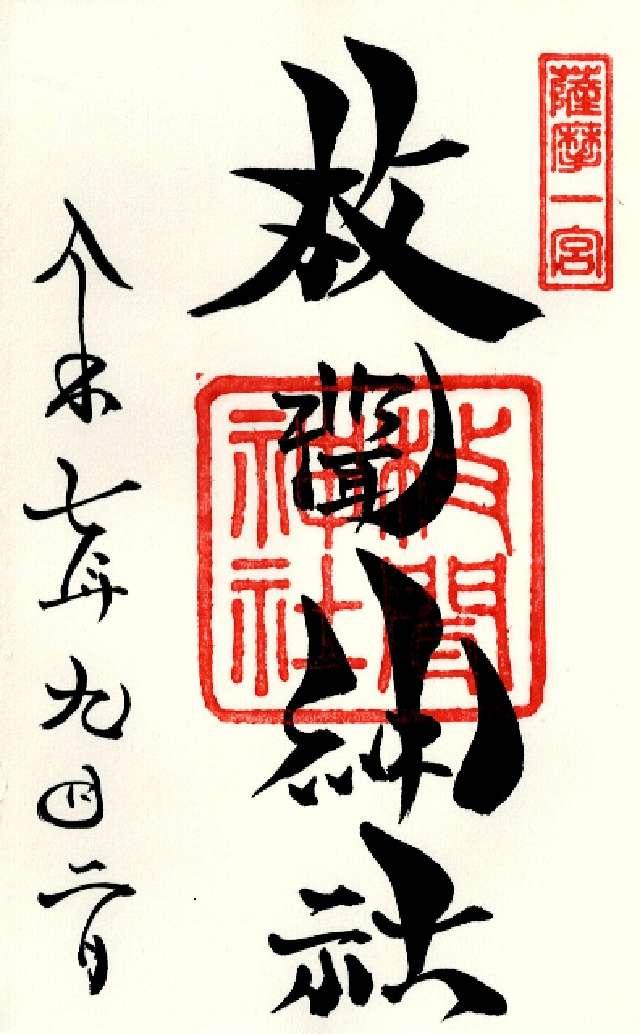 薩摩一宮
枚聞神社
枚聞
神社
令和七年九月二日